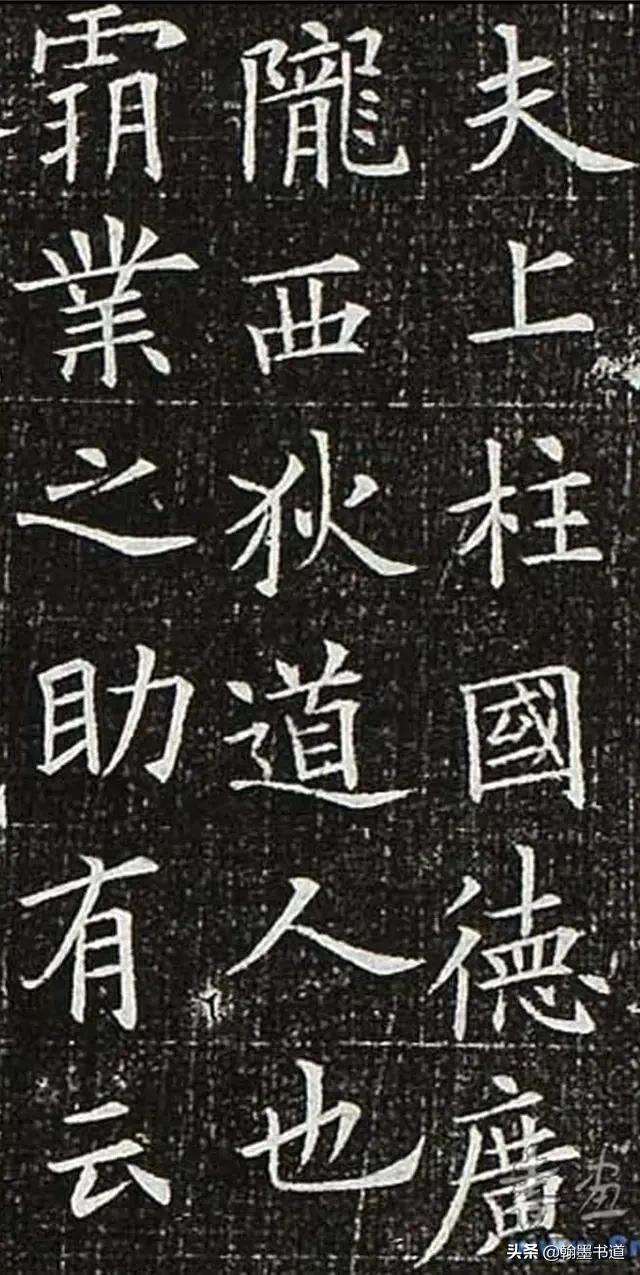 夫上柱國德廣
隴西狄道人也
霸業之助有云
头条 @翰墨书道